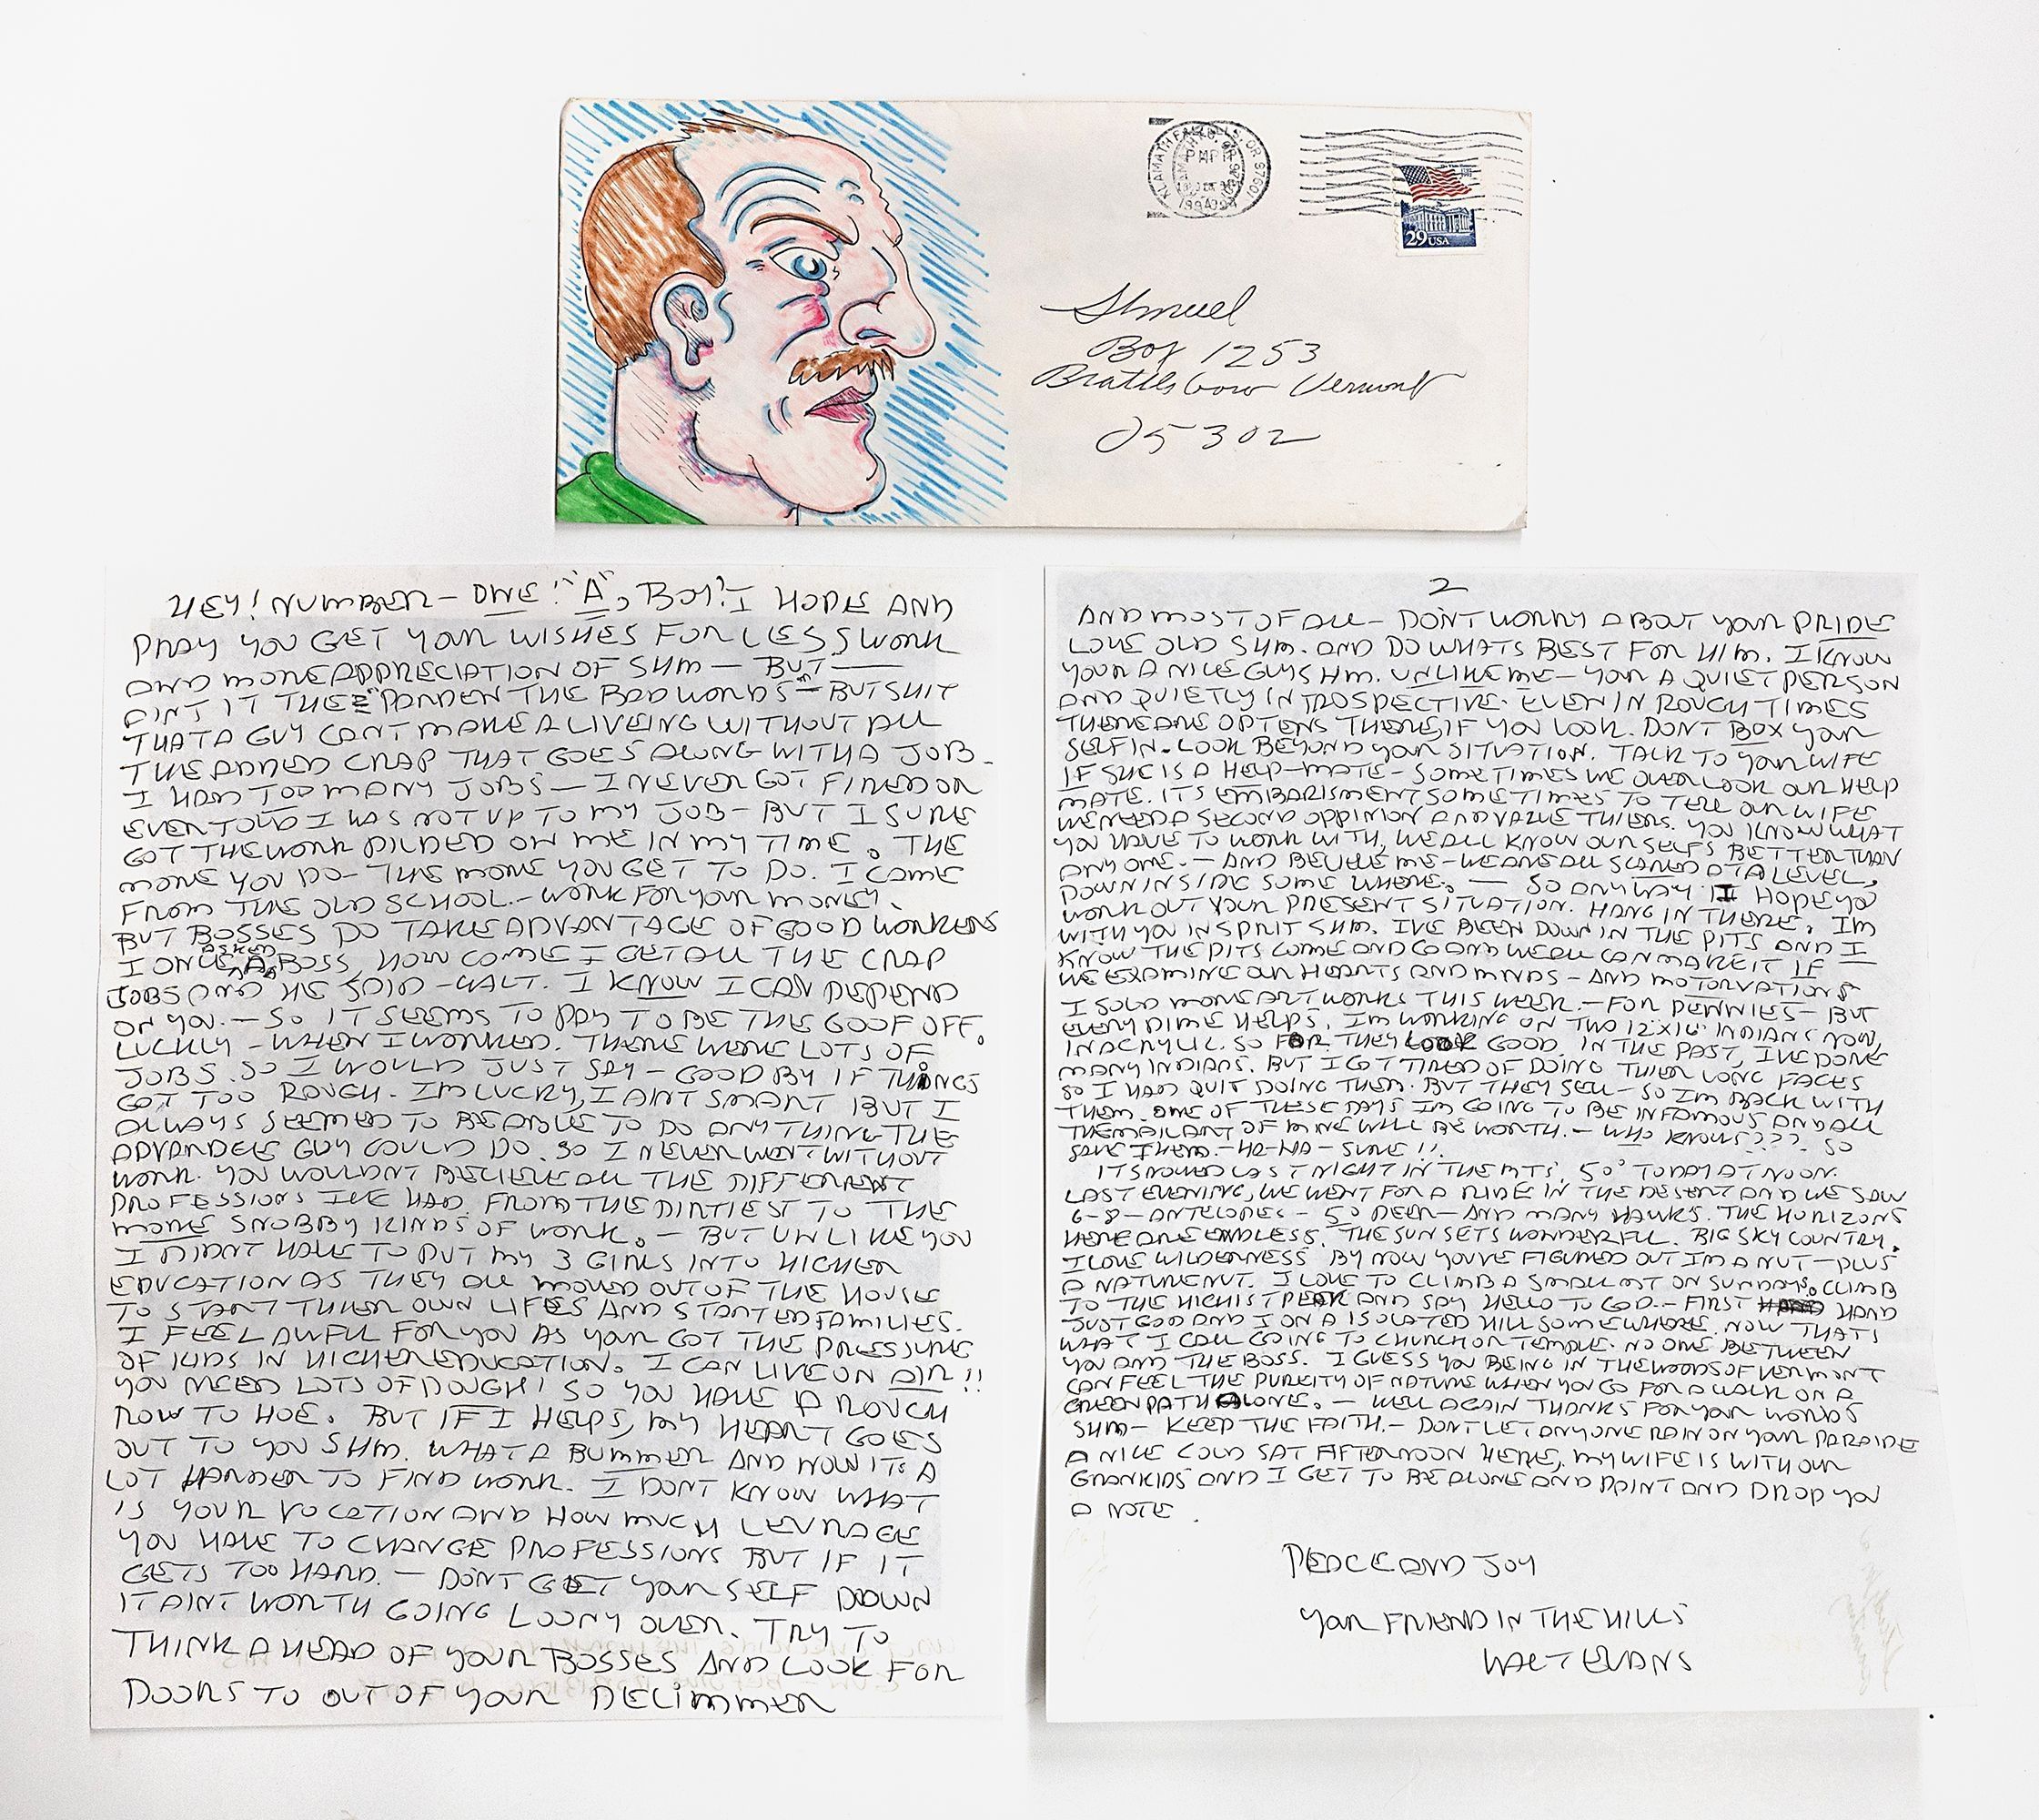 KLAMATH FALLS, OR 97601
PM
1994
29 USA
Shmuel
Box 1253
Brattleboro Vermont
05302
HEY! NUMBER – ONE! "A", BOY! I HOPE AND
PRAY YOU GET YOUR WISHES FOR LESS WORK
AND MORE APPRECIATION OF SHM – BUT –
AINT IT THE "PARDEN THE BAD WORDS" – BUT SHIT
THAT A GUY CANT MAKE A LIVEING WITHOUT ALL
THE ADDED CRAP THAT GOES ALONG WITH A JOB.
I HAD TOO MANY JOBS – I NEVER GOT FIRED OR
EVEN TOLD I WAS NOT UP TO MY JOB – BUT I SURE
GOT THE WORK PILDED ON ME IN MY TIME. THE
MORE YOU DO – THE MORE YOU GET TO DO. I COME
FROM THE OLD SCHOOL. – WORK FOR YOUR MONEY.
BUT BOSSES DO TAKE ADVANTAGE OF GOOD WORKERS
I ONCE ASKED A BOSS, HOW COME I GET ALL THE CRAP
JOBS AND HE SAID – WALT. I KNOW I CAN DEPEND
ON YOU. – SO IT SEEMS TO PAY TO BE THE GOOF OFF.
LUCKLY – WHEN I WORKED. THERE WERE LOTS OF
JOBS. SO I WOULD JUST SAY – GOOD BY IF THINGS
GOT TOO ROUGH. IM LUCKY, I AINT SMART BUT I
ALWAYS SEEMED TO BE ABLE TO DO ANY THING THE
ADVANDEG GUY COULD DO. SO I NEVER WENT WITHOUT
WORK. YOU WOULDNT BELIEVE ALL THE DIFFERENT
PROFESSIONS IVE HAD. FROM THE DIRTIEST TO THE
MORE SNOBBY KINDS OF WORK. – BUT UNLIKE YOU
I DIDNT HAVE TO PUT MY 3 GIRLS INTO HIGHER
EDUCATION AS THEY ALL MOVED OUT OF THE HOUSE
TO START THEIR OWN LIFES AND STARTED FAMILIES.
I FEEL AWFUL FOR YOU AS YOUR GOT THE PRESSURE
OF KIDS IN HIGHER EDUCATION. I CAN LIVE ON AIR!!
YOU NEED LOTS OF DOUGH! SO YOU HAVE A ROUGH
ROW TO HOE. BUT IF I HELPS, MY HEART GOES
OUT TO YOU SHM. WHAT A BUMMER AND NOW ITS A
LOT HARDER TO FIND WORK. I DONT KNOW WHAT
IS YOUR VOCATION AND HOW MUCH LEVRAGE
YOU HAVE TO CHANGE PROFESSIONS BUT IF IT
GETS TOO HARD. – DON'T GET YOUR SELF DOWN
IT AINT WORTH GOING LOONY OVER. TRY TO
THINK AHEAD OF YOUR BOSSES AND LOOK FOR
DOORS TO OUT OF YOUR DELIMMER
2
AND MOST OF ALL – DON'T WORRY ABOUT YOUR PRIDE
LOVE OLD SHM. AND DO WHATS BEST FOR HIM. I KNOW
YOUR A NICE GUY SHM. UNLIKE ME – YOUR A QUIET PERSON
AND QUIETLY INTROSPECTIVE. EVEN IN ROUGH TIMES
THERE ARE OPTIONS THERE, IF YOU LOOK. DONT BOX YOUR
SELF IN. LOOK BEYOND YOUR SITUATION. TALK TO YOUR WIFE
IF SHE IS A HELP-MATE – SOMETIMES WE OVER LOOK OUR HELP
MATE. ITS EMBARISMENT SOMETIMES TO TELL OUR WIFE
WE NEED A SECOND OPPINION AND VALUE THIERS. YOU KNOW WHAT
YOU HAVE TO WORK WITH, WE ALL KNOW OUR SELFS BETTER THAN
ANY ONE. – AND BELIEVE ME – WE ARE ALL SCARED AT A LEVEL,
DOWN INSIDE SOME WHERE. – SO ANYWAY I HOPE YOU
WORK OUT YOUR PRESENT SITUATION. HANG IN THERE. IM
WITH YOU IN SPIRIT SHM. IVE BEEN DOWN IN THE PITS AND I
KNOW THE PITS COME AND GO AND WE ALL CAN MAKE IT IF
WE EXAMINE OUR HEARTS AND MINDS – AND MOTORVATIONS
I SOLD MORE ART WORKS THIS WEEK. – FOR PENNIES – BUT
EVERY DIME HELPS. IM WORKING ON TWO 12"X16" INDIANS NOW,
IN ACRYLIC. SO FOR THEY LOOK GOOD. IN THE PAST, IVE DONE
MANY INDIANS. BUT I GOT TIRED OF DOING THEIR LONG FACES
SO I HAD QUIT DOING THEM. BUT THEY SELL – SO IM BACK WITH
THEM. ONE OF THESE DAYS IM GOING TO BE INFAMOUS AND ALL
THE MAIL ART OF MINE WILL BE WORTH. – WHO KNOWS???. SO
SAVE THEM. – HA-HA – SURE!!
ITS NOWED LAST NIGHT IN THE MTS, 50° TODAY AT NOON.
LAST EVENING, WE WENT FOR A RIDE IN THE DESERT AND WE SAW
6-8 – ANTELOPES – 50 DEER – AND MANY HAWKS. THE HORIZONS
HERE ARE ENDLESS. THE SUN SETS WONDERFUL. BIG SKY COUNTRY.
I LOVE WILDERNESS BY NOW YOU'VE FIGURED OUT IM A NUT – PLUS
A NATURE NUT. I LOVE TO CLIMB A SMALL MT ON SUNDAYS. CLIMB
TO THE HIGHIST PEAK AND SAY HELLO TO GOD. – FIRST HAND
JUST GOD AND I ON A ISOLATED HILL SOMEWHERE. NOW THATS
WHAT I CALL GOING TO CHURCH OR TEMPLE. NO ONE BETWEEN
YOU AND THE BOSS. I GUESS YOU BEING IN THE WOODS OF VERMONT
CAN FEEL THE PUREITY OF NATURE WHEN YOU GO FOR A WALK ON A
GREEN PATH ALONE. – WELL AGAIN THANKS FOR YOUR WORDS
SHM – KEEP THE FAITH. – DONT LET ANYONE RAIN ON YOUR PARAIDE
A NICE COLD SAT AFTERNOON HERE, MY WIFE IS WITH OUR
GRANKIDS AND I GET TO BE ALONE AND PAINT AND DROP YOU
A NOTE.
PEACE AND JOY
YOUR FRIEND IN THE HILLS
WALT EVANS